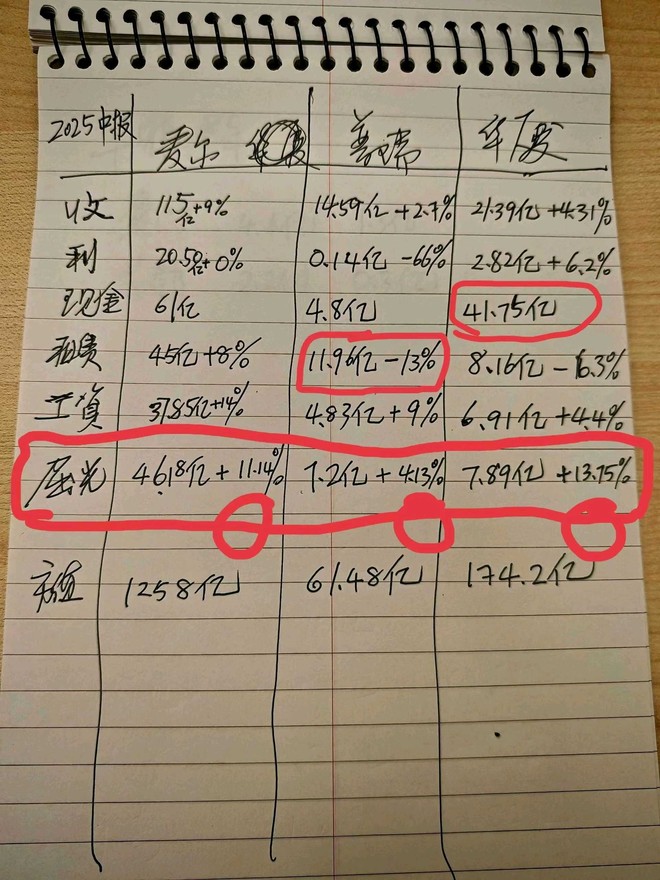 2025中报 爱尔 普瑞 华厦
收 115亿+9% 14.59亿+2.7% 21.39亿+4.31%
利 20.5亿+0% 0.14亿-66% 2.82亿+6.2%
现金 61亿 4.8亿 41.75亿
租赁 45亿+8% 11.96亿-13% 8.16亿-6.3%
工资 37.85亿+14% 4.83亿+9% 6.91亿+4.4%
屈光 46.18亿+11.14% 7.2亿+4.13% 7.89亿+13.75%
市值 1258亿 61.48亿 174.2亿